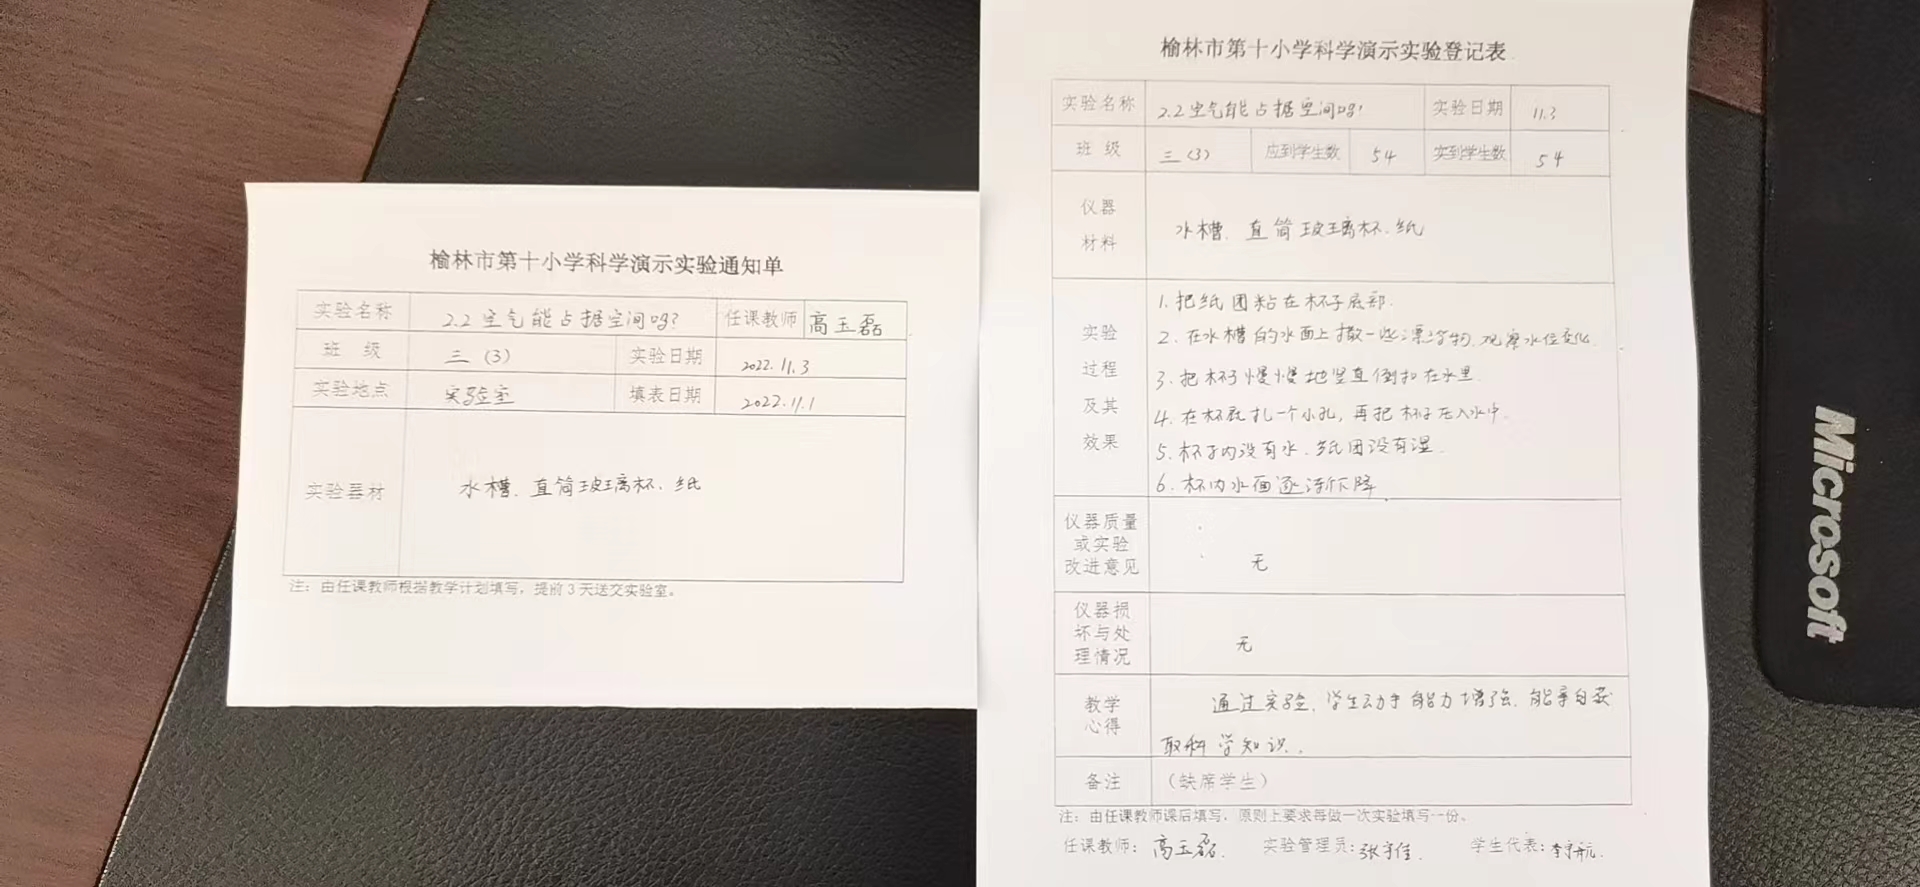 榆林市第十小学科学演示实验通知单
实验名称 2.2空气能占据空间吗? 任课教师 高玉磊
班 级 三（3） 实验日期 2022.11.3
实验地点 实验室 填表日期 2022.11.1
实验器材 水槽、直筒玻璃杯、纸
注：由任课教师根据教学计划填写，提前3天送交实验室。
榆林市第十小学科学演示实验登记表
实验名称 2.2空气能占据空间吗? 实验日期 11.3
班 级 三（3） 应到学生数 54 实到学生数 54
仪器材料 水槽、直筒玻璃杯、纸
实验过程及其效果
1. 把纸团粘在杯子底部.
2. 在水槽的水面上撒一些漂浮物,观察水位变化.
3. 把杯子慢慢地竖直倒扣在水里.
4. 在杯底扎一个小孔,再把杯子压入水中.
5. 杯子内没有水、纸团没有湿.
6. 杯内水面逐渐下降
仪器质量或实验改进意见 无
仪器损坏与处理情况 无
教学心得 通过实验,学生动手能力增强,能亲自获
取科学知识.
备注 （缺席学生）
注：由任课教师课后填写，原则上要求每做一次实验填写一份。
任课教师：高玉磊 实验管理员：张宇佳 学生代表：李宇航
Microsoft